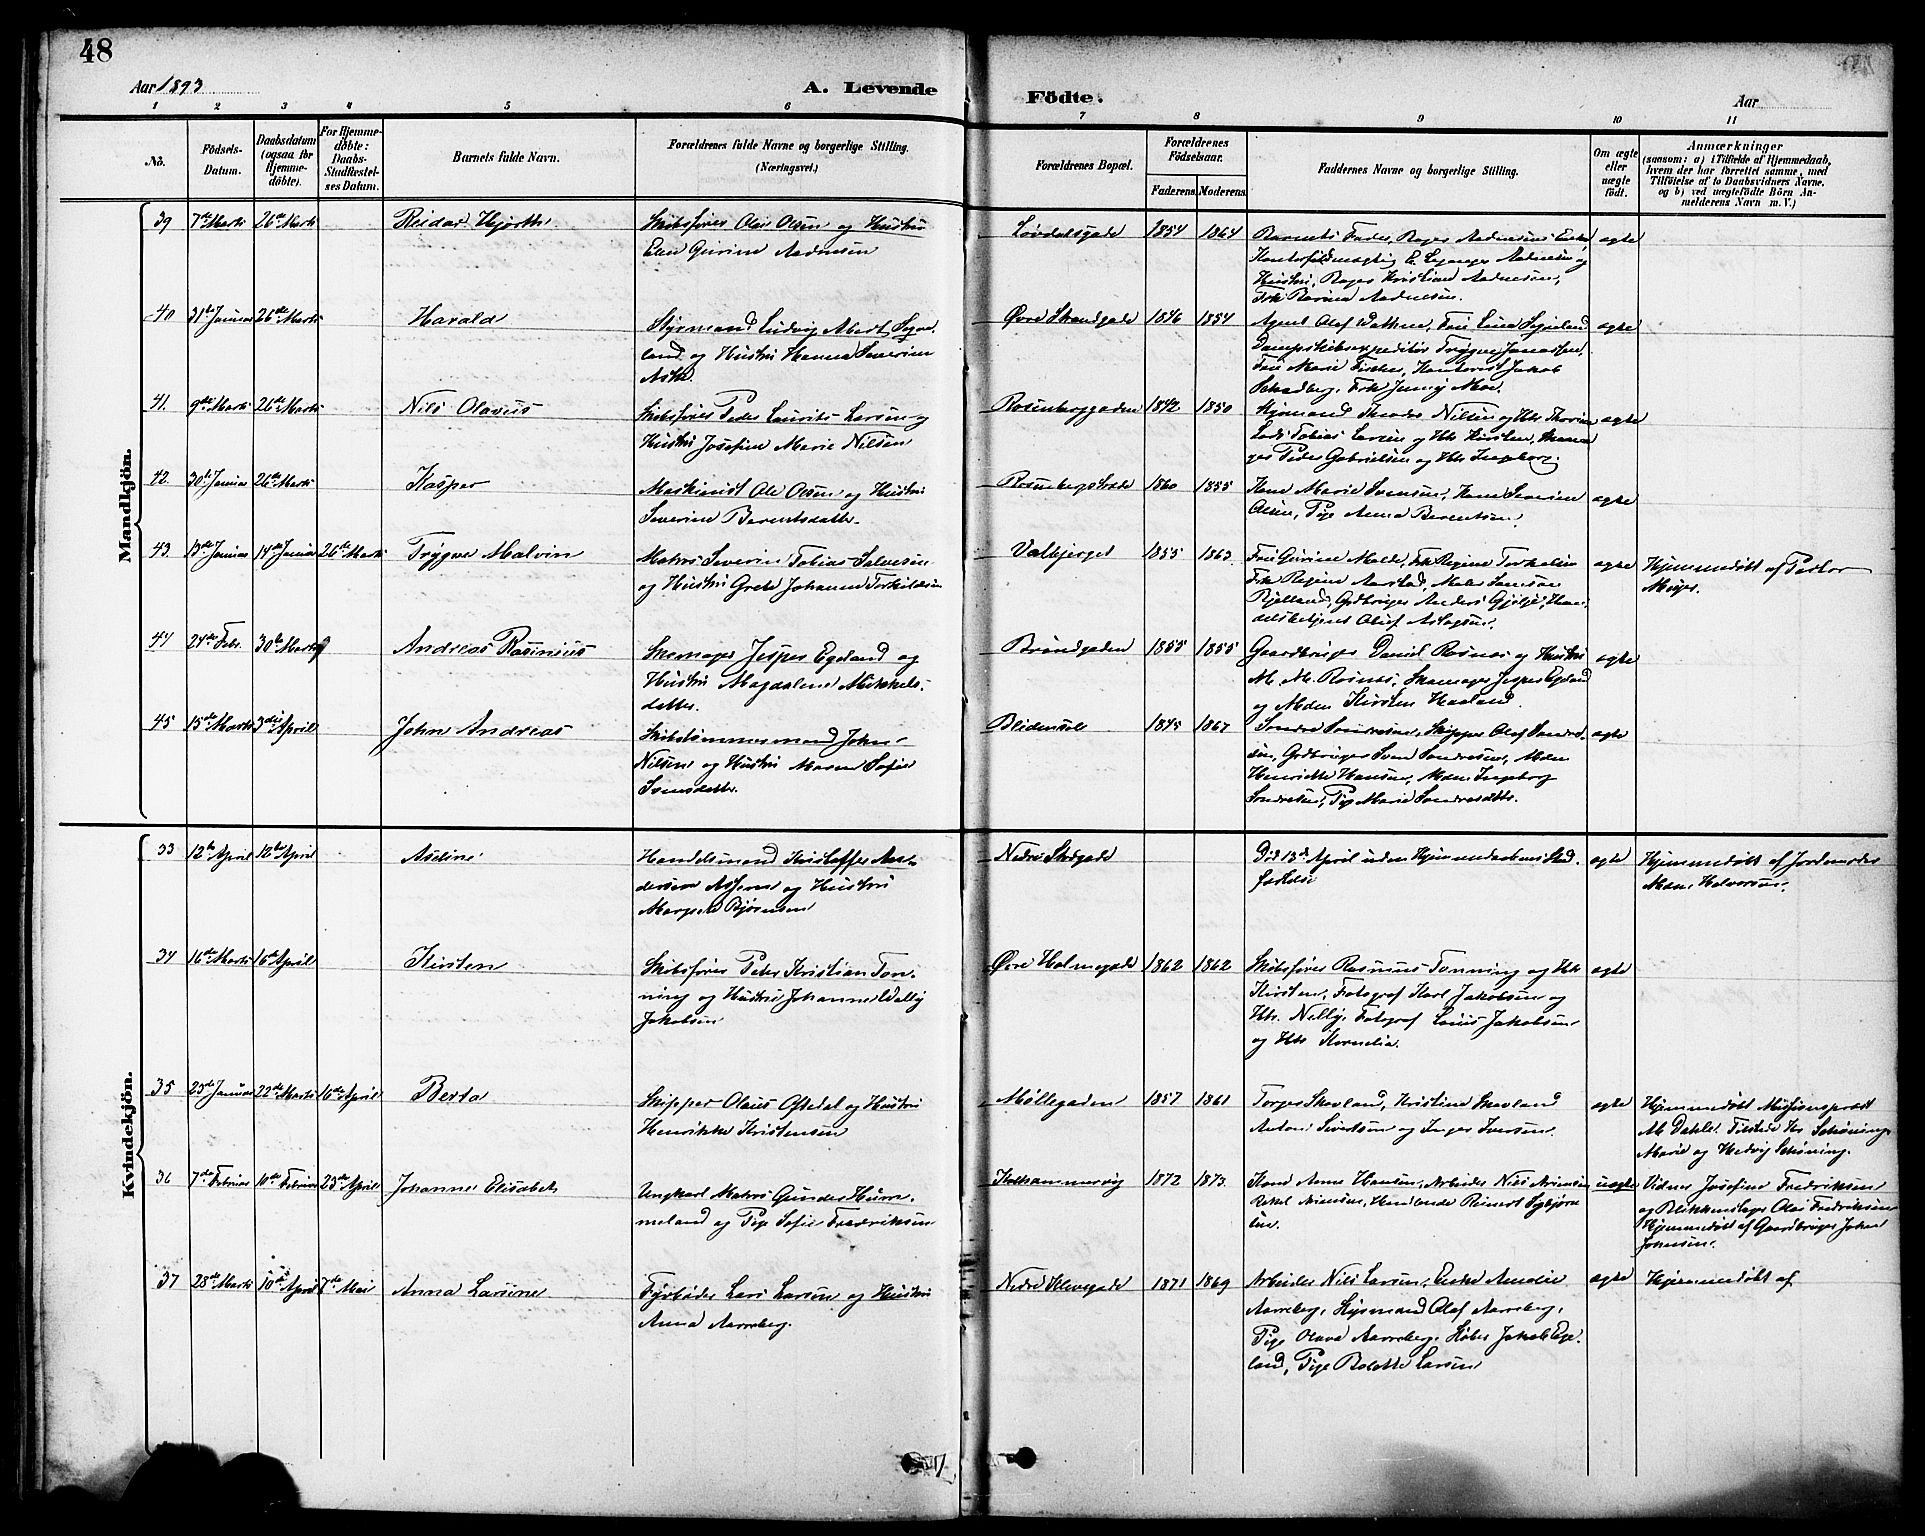 48
Aar 1893
A. Levende
Födte.
Aar
1 2 3 4 5 6 7 8 9 10 11
No.
Födsels-
Datum.
Daabsdatum
(ogsaa for
Hjemme-
döbte).
For Hjemme-
döbte:
Daabs-
Stadfæstel-
ses Datum.
Barnets fulde Navn.
Forældrenes fulde Navne og borgerlige Stilling.
(Næringsvei.)
Forældrenes Bopæl.
Forældrenes
Födselsaar.
Faderens. Moderens.
Faddernes Navne og borgerlige Stilling.
Om ægte
eller
uægte
födt.
Anmærkninger
(saasom: a) i Tilfælde af Hjemmedaab,
hvem der har forrettet samme, med
Tilföielse af to Daabsvidners Navne,
og b) ved uægtefödte Börn An-
melderens Navn m. V.)
Mandkjön.
39 7de Marts 26de Marts Reidar Hjorth
Skibsfører Ole Olsen og Hustru
Elen Gurine Aadnesen
Løvdalsgade 1854 1864
Barnets Fader, Bager Aadnesens Enke,
Hustru, Bager Kristian Aadnesen,
Frk Aadnesen.
ægte
40 31te Januar 26de Marts Harald
Styrmand Ludvig
land og Hustru Hanna Severine
Ask.
Øvre Strandgade 1846 1854
Agent Olef
Dampskibsexpeditør Trygve Jonassen,
Fru Marie Jakob
Frk Jenny Moe.
ægte
41. 9de Marts 26de Marts Nils Olavus
Skibsfører Peder Laurits Larsen og
Hustru Josefine Marie Nilsen
Rosenberggaden 1842 1850
Styrmand Theodor Nilsen og Htr Thorine,
Lods Tobias Larsen og Htr Kirsten, Skoma-
ger Peder Gabrielsen og Htr Ingeborg.
ægte
42. 30te Januar 26de Marts Kasper
Maskinist Ole Olsen og Hustru
Severine Berentsdatter.
1860 1855
Kone Marie Svensen, Kone Severine
Olsen, Pige Anna Berentsen.
ægte
43. 13de Januar 14de Januar 26de Marts Trygve Malvin
Matros Severin Tobias Salvesen
og Hustru Grete Johanne Torkildsen
Valbjerget 1855 1863
Fru Gurine Molde, Frk Regine Torkelsen
Frk Regine Aarstad, Maler Samson
Bjelland, Grdbruger Anders Gjilje, Han-
delsbetjent Oluf Aslagsen.
ægte
Hjemmedøbt af Pastor
44 24de Febr. 30te Marts Andreas Rasinius
Skomager Jesper Egeland og
Hustru Magdalene Mikkels-
datter.
Brøndgaden 1855 1855
Gaardbruger Daniel Rosnes og Hustru
M. M. Rosnes, Skomager Jesper Egeland
og Mdm Kirsten Haaland.
ægte
45 15de Marts 3die April John Andreas
Skibstømmermand John
Nilsen og Hustru Maren Sofie
Svensdatter.
Blidensol 1845 1867
Sondre Sondresen, Skipper Olaf Sondre-
sen, Grdbruger Sven Sondresen, Mdm
Henriette Hansen, Mdm Ingeborg
Sondresen, Pige Marie Sondresdtr.
ægte
Kvindekjön.
33 12te April 12te April Aseline
Handelsmand Kristoffer An-
dersen og Hustru
Bjørnsen
Nedre
Død 13de April uden Hjemmedaabens Stad-
fæstelse
ægte
Hjemmedøbt af Jordmoder
Mdm. Halvorsen.
34 16de Marts 16de April Kirsten
Skibsfører Peter Kristian Ton-
ning og Hustru Johanne Wally
Jakobsen
Øvre Holmegade 1862 1862
Skibsfører Rasmus Tonning og Htr
Kirsten, Fotograf Karl Jakobsen og
Htr. Nelly, Fotograf Louis Jakobsen
og Htr Kornelia.
ægte
35 23de Januar 22de Marts 16de April Berta
Skipper Olaus Oftedal og Hustru
Henrikke Kristensen
Møllegaden 1857 1861
Torger Skavland, Kristine Skavland
Anton Sivertsen og Inger Iversen.
ægte
Hjemmedøbt Missionspræst
M. Dahle. Tilstede Hr. Schøning
Marie og Hedvig Schøning.
36 7de Februar 10de Februar 23de April Johanne Elisabet
Ungkarl Matros Gunder Humme-
meland og Pige Sofie Fredriksen
Kalhammervig 1872 1873.
Kone Anna Hansen, Arbeider Nils
Reinert
sen.
uægte
Vidner Josefine Fredriksen
og Blikkenslager Olai Fredriksen
Hjemmedøbt af Gaardbruger Johan
Johnsen.
37 28de Marts 10de April 7de Mai Anna Larsine
Fyrbøder Lars Larsen og Hustru
Anna Aarreberg.
Nedre Klevegade 1871 1869
Arbeider Nils Larsen, Enke Amalie
Aarreberg, Styrmand Olaf Aarreberg,
Pige Olava Aarreberg, Støber Jakob Ege-
land, Pige Bolette Larsen
ægte
Hjemmedøbt af